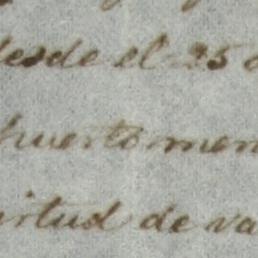 desde el 25
puerto men
irtud de va